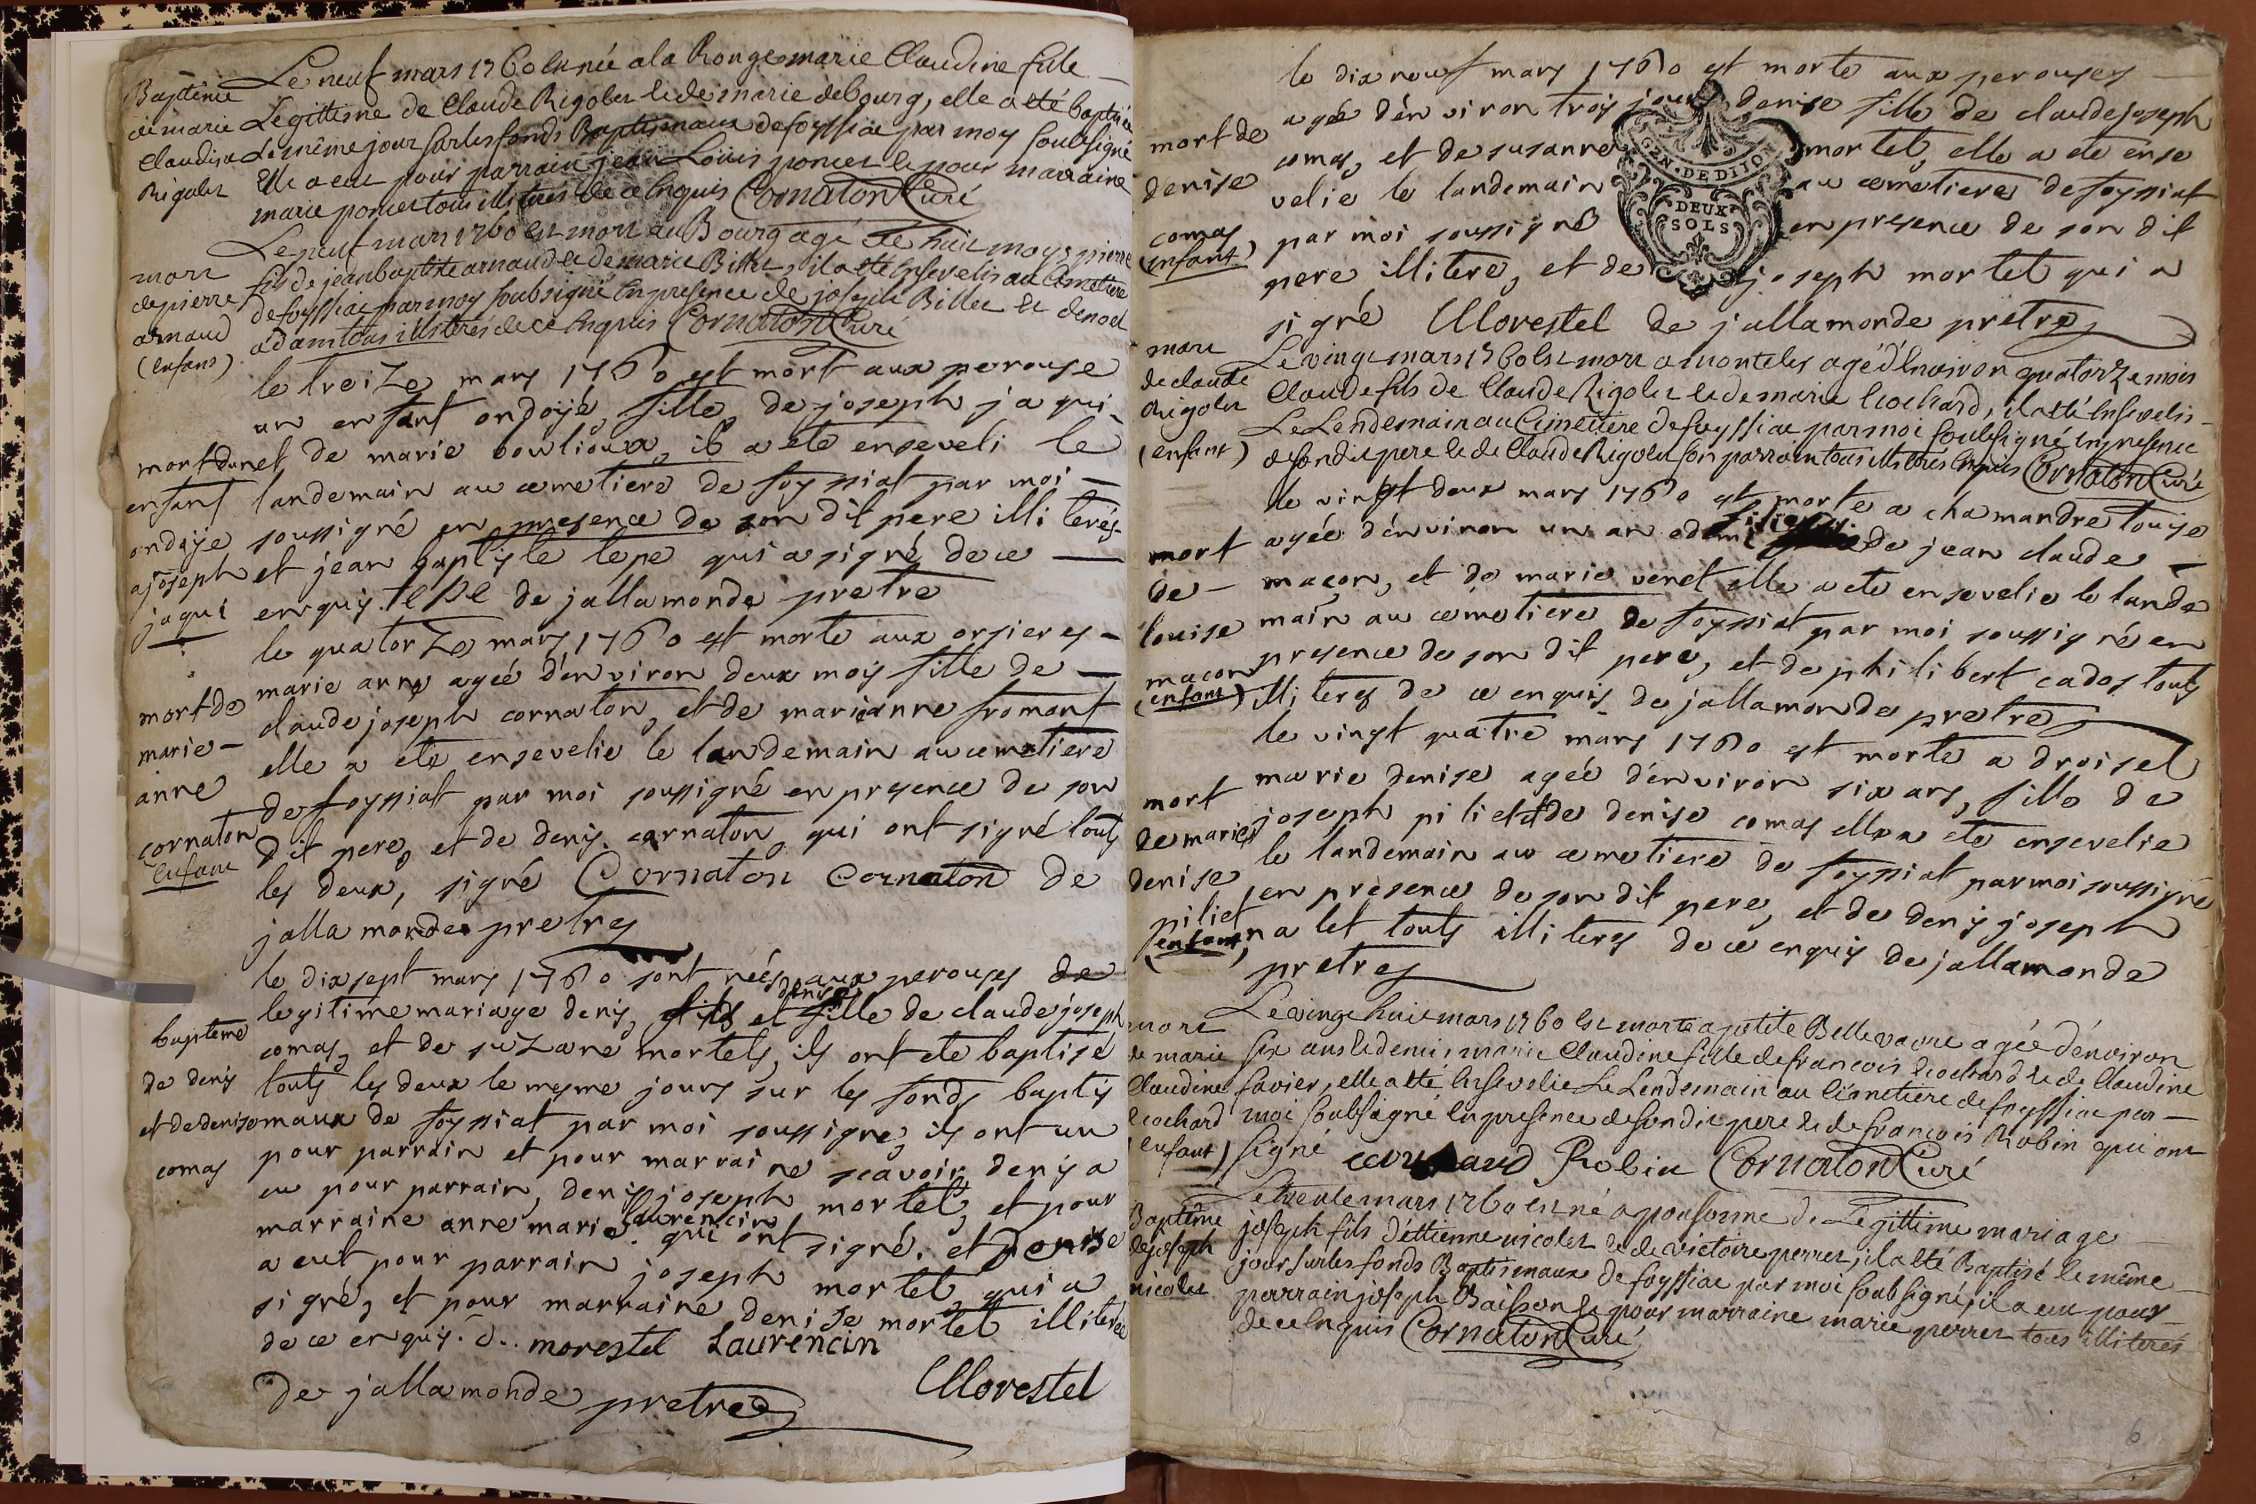 Baptême
de marie
Claudine
Rigolet
Le neuf mars 1760 est née a la Rouge marie Claudine fille
Legittime de Claude Rigolet et de marie debourg, elle a eté baptisée
Le même jour sur les fonds Baptismaux de foyssiac par moy soubsigné
Elle a eut pour parrain jean Louis poncet et pour marraine
marie poncet tous illiterés de ce Enquis Cornaton Curé
mort
de pierre
arnaud
(enfant)
Le neuf mars 1760 est mort au Bourg agé de huit moys pierre
fils de jean baptiste arnaud et de marie Billet, il a eté Ensevelis au Cimetiere
de foyssiac par moy soubsigné En presence de joseph Billet et de noel
adam tous illiterés de ce Enquis Cornaton Curé
mort dun
enfant
ondoye
a joseph
jaqui
le treize mars 1760 est mort aux perouse
un enfant ondoyé, fille, de joseph jaqui
et de marie bouilloux, il a ete enseveli le
landemain au cemetiere de foyssiat par moi
soussigné en presence de son dit pere illiterés
et jean baptiste lepe qui a signé de ce
enquis. lepe de jallamonde pretre
mort de
marie
anne
cornaton
Enfant
le quatorze mars 1760 est morte aux orsieres
marie anne agée d'environ deux mois fille de
claude joseph cornaton, et de marianne fromont
elle a ete ensevelie le landemain au cemetiere
de foyssiat par moi soussigné en presence de son
dit pere, et de denis cornaton, qui ont signé touts
les deux, signé Cornaton Cornaton de
jallamonde pretre
bapteme
de denis
et de denise
comas
le dix sept mars 1760 sont nées aux perouses de
legitime mariage denis, fils et denise fille de claude joseph
comas, et de suzane mortel, ils ont ete baptisé
touts les deux le mesme jours sur les fonds baptis
maux de foyssiat par moi soussigné, ils ont eu
pour parrain et pour marraine scavoir, denis a
eu pour parrain, denis joseph mortel, et pour
marraine anne marie laurencin qui ont signé. et denise
a eut pour parrain joseph mortel qui a
signé, et pour marraine denise mortet illiterée
de ce enquis. d.. morestel Laurencin
de jallamonde pretre Morestel
mort de
denise
comas
(enfant)
le dix neuf mars 1760 est morte aux perouses
agée d'environ trois jours denise fille de claude joseph
comas, et de susanne mortet, elle a ete ense
velie le landemain au cemetiere de foyssiat
par moi soussigné en presence de son dit
pere illitere, et de joseph mortet qui a
signé Morestel de jallamonde pretre
GEN. DE DIJON
DEUX
SOLS
mort
de claude
Rigolet
(enfant)
Le vingt mars 1760 est mort a montelet agé d'Environ quatorze mois
Claude fils de Claude Rigolet et de marie Cochard, il a eté Ensevelis
Le Lendemain au Cimetiere de foyssiac par moi soubsigné En presence
de son dit pere et de Claude Rigolet son parrain tous illiterés Enquis Cornaton Curé
mort
de
louise
macon
(enfant)
le vingt deux mars 1760 est morte a chamandre louise
agée d'environ un an et demi fille de jean claude
macon, et de marie venet elle a ete ensevelie le lande
main au cemetiere de foyssiat par moi soussigné en
presence de son dit pere, et de philibert cados touts
illiteres de ce enquis de jallamonde pretre
mort
de marie
denise
piliet
(enfant)
le vingt quatre mars 1760 est morte a droisel
marie denise agée d'environ six ans, fille de
joseph piliet et de denise comas elle a ete ensevelie
le landemain au cemetiere de foyssiat par moi soussigné
en presence de son dit pere, et de denis joseph
nalet touts illiteres de ce enquis de jallamonde
pretre
mort
de marie
Claudine
Cochard
(enfant)
Le vingt huit mars 1760 est morte a petite Bellevavre agée d'environ
six ans et demi, marie Claudine fille de francois Cochard et de Claudine
favier, elle a eté Ensevelie Le Lendemain au Cimetiere de foyssiac par
moi soubsigné En presence de son dit pere et de francois Robin qui ont
signé Robin Cornaton Curé
Baptême
de joseph
nicolet
Le trente mars 1760 est né a ponsonne de Legittime mariage
joseph fils d'éttienne nicolet et de victoire perret, il a eté Baptisé le même
jour sur les fonds Baptismaux de foyssiac par moi soubsigné, il a eut pour
parrain joseph Baisson et pour marraine marie perret tous illiterés
de ce Enquis Cornaton Curé
6